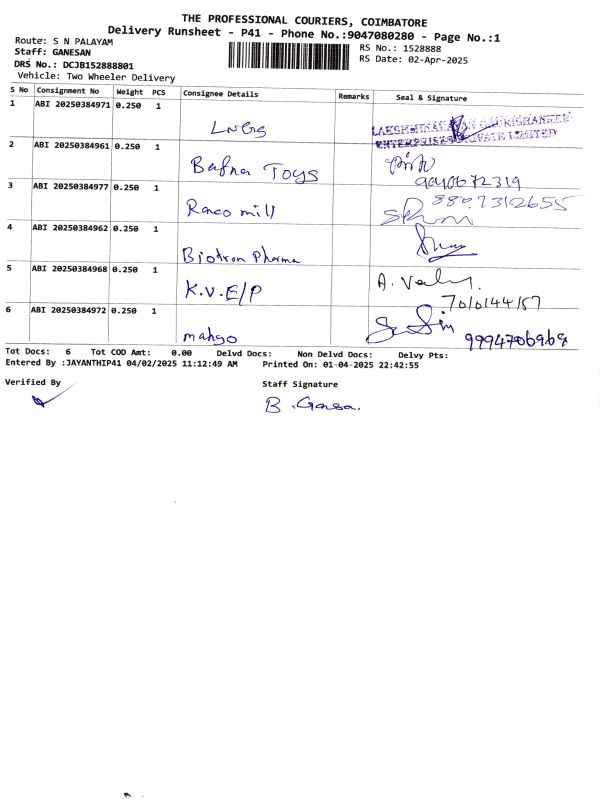 THE PROFESSIONAL COURIERS, COIMBATORE
Delivery Runsheet - P41 - Phone No.:9047080280 - Page No.:1
Route: S N PALAYAM
Staff: GANESAN
DRS No.: DCJB152888801
Vehicle: Two Wheeler Delivery
RS No.: 1528888
RS Date: 02-Apr-2025
S No Consignment No Weight PCS Consignee Details Remarks Seal & Signature
1 ABI 20250384971 0.250 1
LNGS
ENTERPRISES PRIVATE LIMITED
2 ABI 20250384961 0.250 1
Bafna Toys
3 ABI 20250384977 0.250 1
Ranco mill
4 ABI 20250384962 0.250 1
Biotron Pharma
5 ABI 20250384968 0.250 1
K.V.E/P
6 ABI 20250384972 0.250 1
mango
9994706969
Tot Docs: 6 Tot COD Amt: 0.00 Delvd Docs: Non Delvd Docs: Delvy Pts:
Entered By :JAYANTHIP41 04/02/2025 11:12:49 AM Printed On: 01-04-2025 22:42:55
Verified By Staff Signature